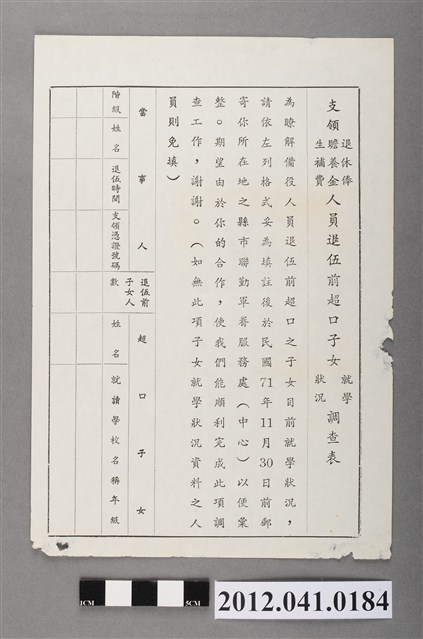 支領退休俸贍養金生補費人員退伍前超口子女就學狀況調查表
為瞭解備役人員退伍前超口之子女目前就學狀況，
請依左列格式妥為填註後於民國71年11月30日前郵
寄你所在地之縣市聯勤軍眷服務處（中心）以便彙
整。期望由於你的合作，使我們能順利完成此項調
查工作，謝謝。（如無此項子女就學狀況資料之人
員則免填）
當事人
退伍前子女人數
超口子女
階級
姓名
退伍時間
支領憑證號碼
姓名
就讀學校名稱年級
1CM
5CM
2012.041.0184